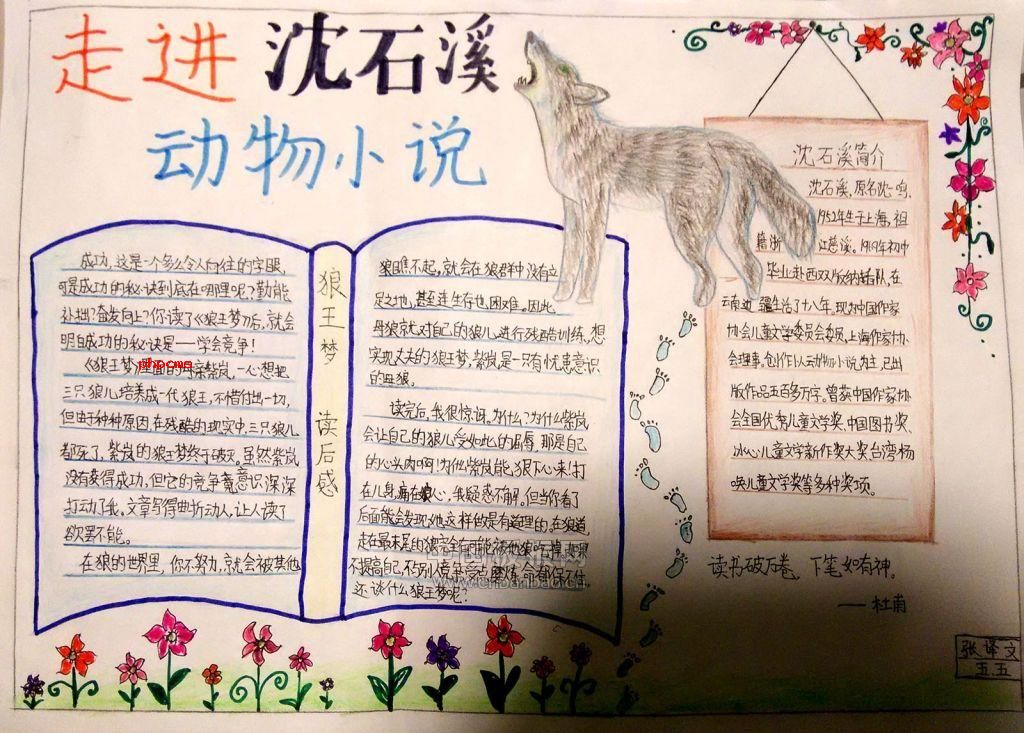 走进沈石溪
动物小说
成功,这是一个多么令人向往的字眼,
可是成功的秘诀到底在哪里呢?勤能
补拙?奋发向上?你读了《狼王梦》后,就会
明白成功的秘诀是——学会竞争!
《狼王梦》里面的母亲紫岚,一心想把
三只狼儿培养成一代狼王,不惜付出一切,
但由于种种原因,在残酷的现实中,三只狼儿
都死了,紫岚的狼王梦终于破灭。虽然紫岚
没有获得成功,但它的竞争意识深深
打动了我。文章写得曲折动人,让人读了
欲罢不能。
在狼的世界里,你不努力,就会被其他
狼王梦 读后感
狼瞧不起,就会在狼群中没有立
足之地,甚至连生存也困难。因此,
母狼就对自己的狼儿进行残酷训练。想
实现丈夫的狼王梦,紫岚是一只有忧患意识
的母狼。
读完后,我很惊讶。为什么?为什么紫岚
会让自己的狼儿受如此的屈辱,那是自己
的心头肉啊!为什么紫岚能狠下心来!打
在儿身,痛在狼心,我疑惑不解。但当你看了
后面能会发现:她这样做是有道理的,在狼道,
走在最末尾的狼完全有可能被他狼吃掉,如果
不提高自己,不与别人竞争,
还谈什么狼王梦呢?
沈石溪简介
沈石溪,原名沈一鸣,
1952年生于上海,祖
籍浙江慈溪。1969年初中
毕业赴西双版纳插队,在
云南边疆生活了十八年,现为中国作家
协会儿童文学委员会委员,上海作家协
会理事。创作以动物小说为主,已出
版作品五百多万字。曾获中国作家协
会全国优秀儿童文学奖、中国图书奖、
冰心儿童文学新作奖大奖、台湾杨
唤儿童文学奖等多种奖项。
读书破万卷,下笔如有神。
——杜甫
张译文
五.五